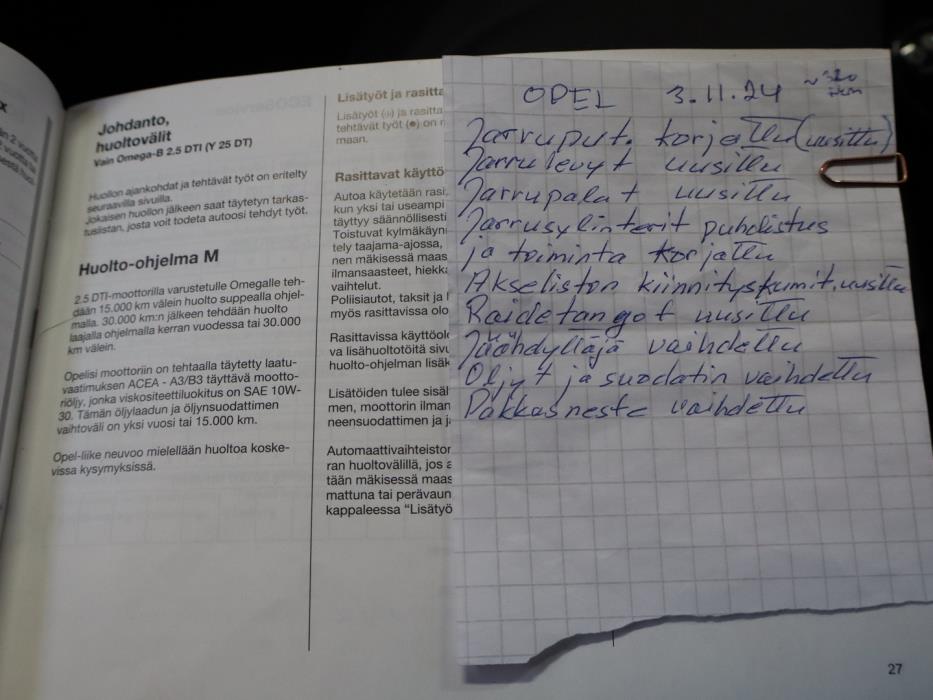 x
Johdanto,
huoltovälit
Vain Omega-B 2.5 DTI (Y 25 DT)
Huollon ajankohdat ja tehtävät työt on eritelty
seuraavilla sivuilla.
Jokaisen huollon jälkeen saat täytetyn tarkas-
tuslistan, josta voit todeta autoosi tehdyt työt.
Huolto-ohjelma M
2.5 DTI-moottorilla varustetulle Omegalle teh-
dään 15.000 km välein huolto suppealla ohjel-
malla. 30.000 km:n jälkeen tehdään huolto
laajalla ohjelmalla kerran vuodessa tai 30.000
km välein.
Opelisi moottoriin on tehtaalla täytetty laatu-
vaatimuksen ACEA - A3/B3 täyttävä mootto-
riöljy, jonka viskositeettiluokitus on SAE 10W-
30. Tämän öljylaadun ja öljynsuodattimen
vaihtoväli on yksi vuosi tai 15.000 km.
Opel-liike neuvoo mielellään huoltoa koske-
vissa kysymyksissä.
Lisätyöt ja rasitta
Lisätyöt (○) ja rasitta
tehtävät työt (●) on m
maan.
Rasittavat käyttö
Autoa käytetään rasi
kun yksi tai useampi
täyttyy säännöllisesti
Toistuvat kylmäkäyn
tely taajama-ajossa,
nen mäkisessä maas
ilmansaasteet, hiekka
vaihtelut.
Poliisiautot, taksit ja
myös rasittavissa olo
Rasittavissa käyttöolo
va lisähuoltotöitä sivu
huolto-ohjelman lisäk
Lisätöiden tulee sisäl
men, moottorin ilman
neensuodattimen ja
Automaattivaihteistor
ran huoltovälillä, jos a
tään mäkisessä maas
mattuna tai perävaun
kappaleessa “Lisätyö
OPEL 3.11.24 ~320
tkm
Jarruput. korjattu (uusittu)
Jarrulevyt uusittu
Jarrupalat uusittu
Jarrusylinterit puhdistus
ja toiminta korjattu
Akseliston kiinnityskumit. uusittu
Raidetangot uusittu
Jäähdyttäjä vaihdettu
Öljyt ja suodatin vaihdettu
Pakkasneste vaihdettu
27